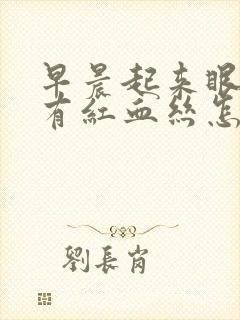 早晨起来眼
有紅血丝怎
劉長肖